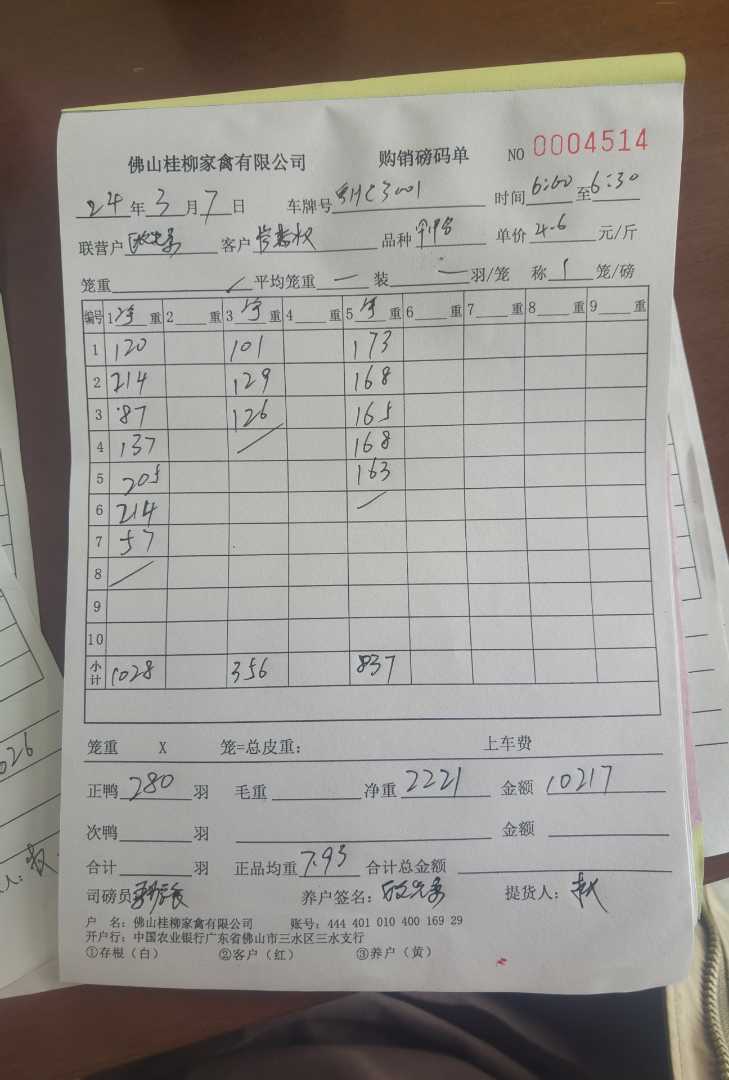 佛山桂柳家禽有限公司 购销磅码单 NO 0004514
24年3月7日 车牌号 3001 时间 6:00 至 6:30
联营户 客户 品种 单价 4.6 元/斤
笼重 平均笼重 一 装 一 羽/笼 称 笼/磅
编号 1 净 重 2 重 3 净 重 4 重 5 净 重 6 重 7 重 8 重 9 重
1 120 101 173
2 214 129 168
3 87 126 165
4 137 168
5 205 163
6 214
7 57
8
9
10
小计 1028 356 837
笼重 X 笼=总皮重: 上车费
正鸭 280 羽 毛重 净重 2221 金额 10217
次鸭 羽 金额
合计 羽 正品均重 7.93 合计总金额
司磅员: 养户签名: 提货人:
户 名: 佛山桂柳家禽有限公司 账号: 444 401 010 400 169 29
开户行: 中国农业银行广东省佛山市三水区三水支行
①存根(白) ②客户(红) ③养户(黄)